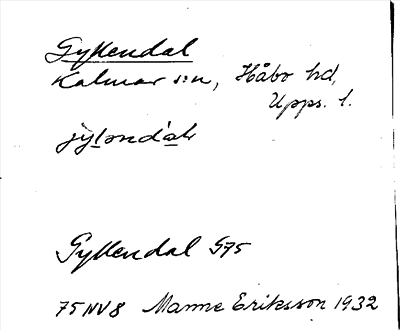 Gyllendal
Kalmar s:n, Håbo hd,
Upps. l.
jyləndal
Gyllendal G75
75 NV8 Manne Eriksson 1932